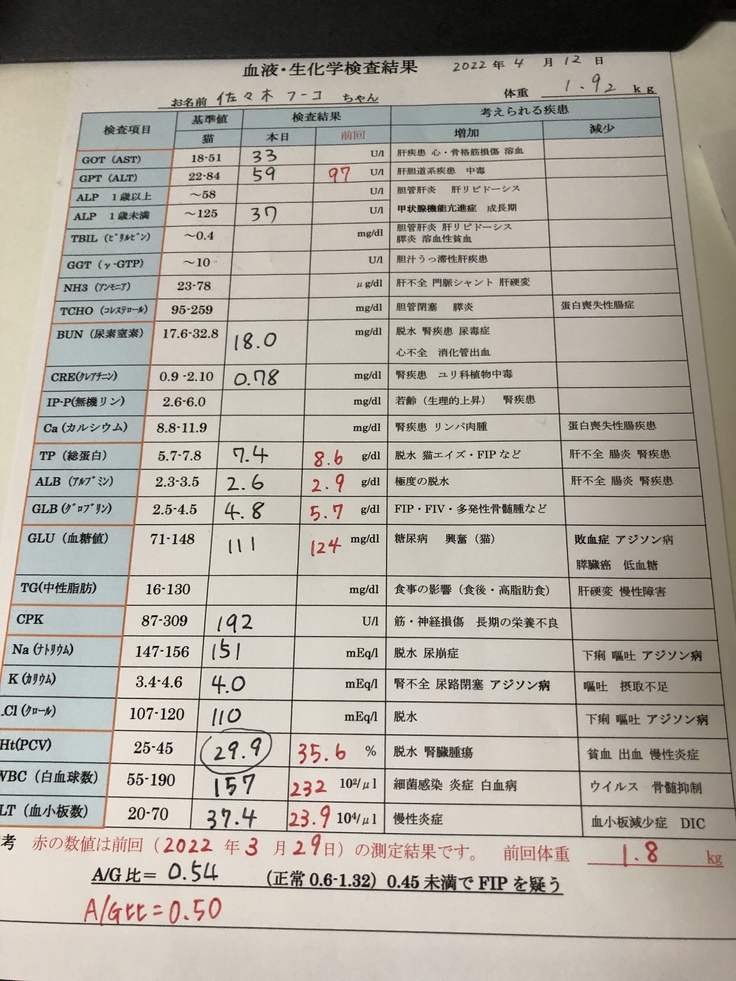 血液・生化学検査結果 2022 年 4 月 12 日
お名前 佐々木 フーコ ちゃん 体重 1.92 kg
検査項目 基準値 検査結果 考えられる疾患
猫 本日 前回 増加 減少
GOT (AST) 18-51 33 U/l 肝疾患 心・骨格筋損傷 溶血
GPT (ALT) 22-84 59 97 U/l 肝胆道系疾患 中毒
ALP 1歳以上 ～58 U/l 胆管肝炎 肝リピドーシス
ALP 1歳未満 ～125 37 U/l 甲状腺機能亢進症 成長期
TBIL (ﾋﾞﾘﾙﾋﾞﾝ) ～0.4 mg/dl 胆管肝炎 肝リピドーシス
膵炎 溶血性貧血
GGT (γ-GTP) ～10 U/l 胆汁うっ滞性肝疾患
NH3 (ｱﾝﾓﾆｱ) 23-78 μg/dl 肝不全 門脈シャント 肝硬変
TCHO (ｺﾚｽﾃﾛｰﾙ) 95-259 mg/dl 胆管閉塞 膵炎 蛋白喪失性腸症
BUN (尿素窒素) 17.6-32.8 18.0 mg/dl 脱水 腎疾患 尿毒症
心不全 消化管出血
CRE(ｸﾚｱﾁﾆﾝ) 0.9 -2.10 0.78 mg/dl 腎疾患 ユリ科植物中毒
IP-P(無機リン) 2.6-6.0 mg/dl 若齢（生理的上昇） 腎疾患
Ca (カルシウム) 8.8-11.9 mg/dl 腎疾患 リンパ肉腫 蛋白喪失性腸疾患
TP (総蛋白) 5.7-7.8 7.4 8.6 g/dl 脱水 猫エイズ・FIPなど 肝不全 腸炎 腎疾患
ALB (ｱﾙﾌﾞﾐﾝ) 2.3-3.5 2.6 2.9 g/dl 極度の脱水 肝不全 腸炎 腎疾患
GLB (ｸﾞﾛﾌﾞﾘﾝ) 2.5-4.5 4.8 5.7 g/dl FIP・FIV・多発性骨髄腫など
GLU (血糖値) 71-148 111 124 mg/dl 糖尿病 興奮（猫） 敗血症 アジソン病
膵臓癌 低血糖
TG(中性脂肪) 16-130 mg/dl 食事の影響（食後・高脂肪食） 肝硬変 慢性障害
CPK 87-309 192 U/l 筋・神経損傷 長期の栄養不良
Na (ﾅﾄﾘｳﾑ) 147-156 151 mEq/l 脱水 尿崩症 下痢 嘔吐 アジソン病
K (ｶﾘｳﾑ) 3.4-4.6 4.0 mEq/l 腎不全 尿路閉塞 アジソン病 嘔吐 摂取不足
Cl (ｸﾛｰﾙ) 107-120 110 mEq/l 脱水 下痢 嘔吐 アジソン病
Ht(PCV) 25-45 29.9 35.6 % 脱水 腎臓腫瘍 貧血 出血 慢性炎症
WBC (白血球数) 55-190 157 232 10²/μl 細菌感染 炎症 白血病 ウイルス 骨髄抑制
LT (血小板数) 20-70 37.4 23.9 10⁴/μl 慢性炎症 血小板減少症 DIC
考 赤の数値は前回（2022 年 3 月 29日）の測定結果です。 前回体重 1.8 kg
A/G 比＝ 0.54 （正常 0.6-1.32）0.45 未満で FIP を疑う
A/G比＝0.50